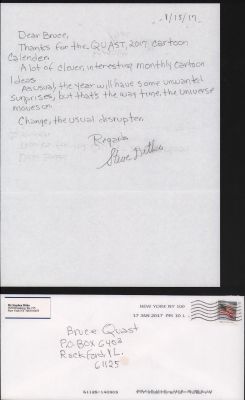 1/15/17
Dear Bruce,
Thanks for the QUAST, 2017 cartoon
Calender.
A lot of clever, interesting monthly cartoon
Ideas
As usual, the year will have some unwanted
surprises, but that's the way time, the universe
moves on
Change, the usual disrupter.
Regards
Steve Ditko
NEW YORK NY 100
17 JAN 2017 PM 10 L
Bruce Quast
P.O. BOX 6402
Rockford IL.
61125